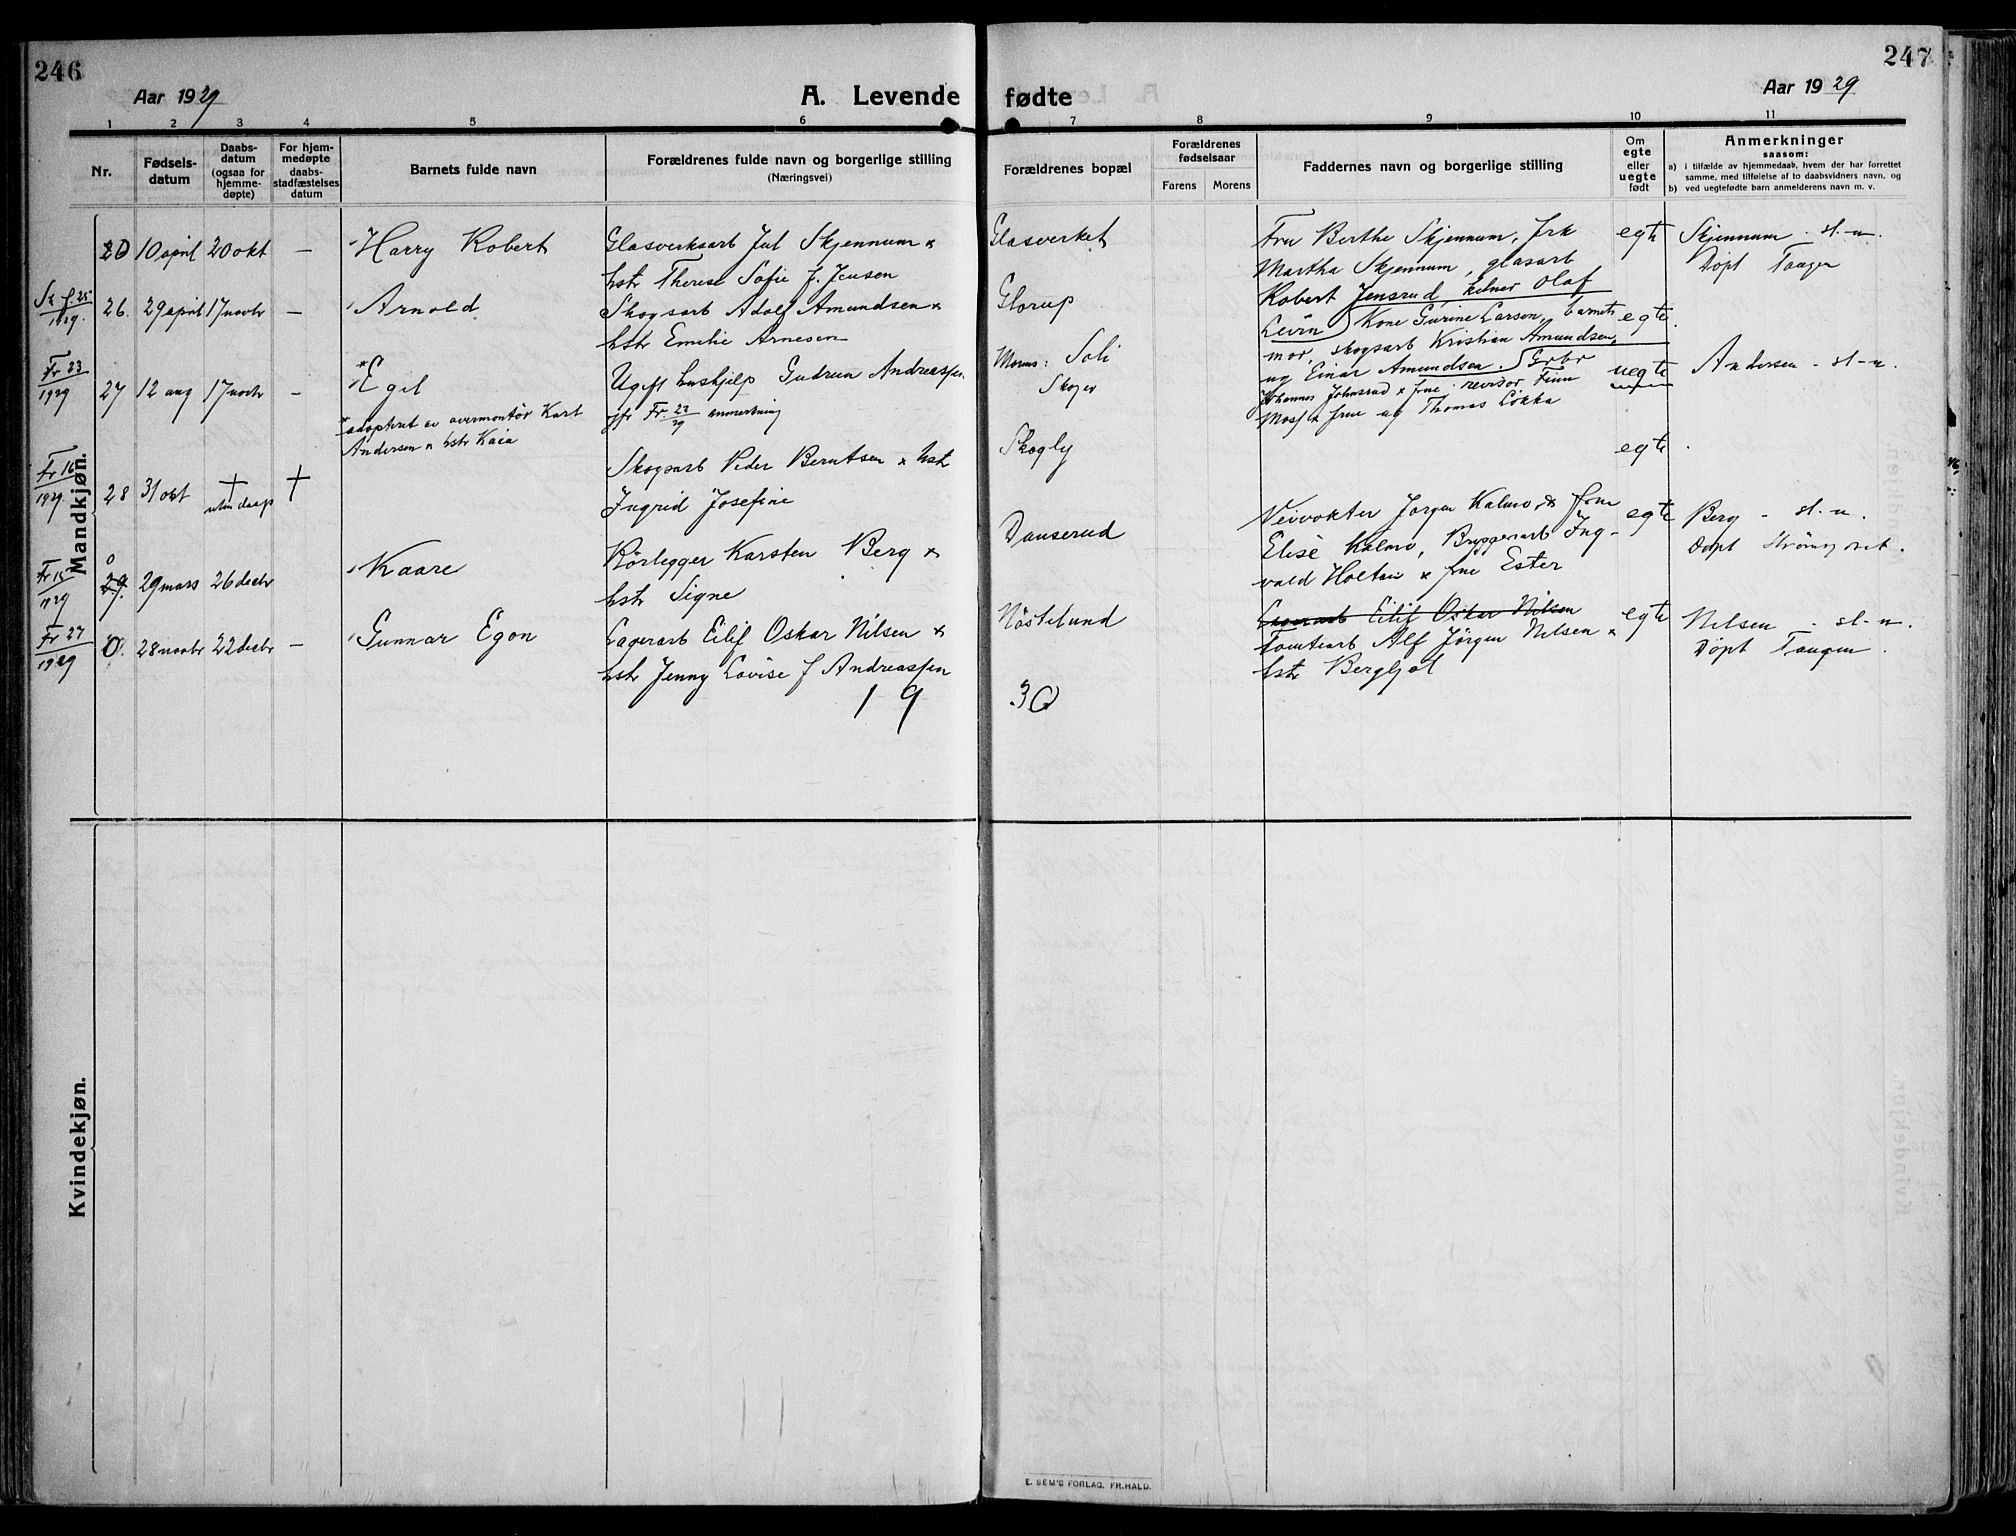 246
Aar 1929
A. Levende
1 2 3 4 5 6
Nr.
Fødsels-
datum
Daabs-
datum
(ogsaa for
hjemme-
døpte)
For hjem-
medøpte
daabs-
stadfæstelses
datum
Barnets fulde navn
Forældrenes fulde navn og borgerlige stilling
(Næringsvei)
Mandkjøn.
10 april 20 okt – Harry Robert Glasverksarb Jul Skjennum &
hstr Therese Sofie f. Jensen
1929. 26. 29 april 17 novbr – Arnold Skogsarb Adolf Amundsen &
hstr Emilie Arnesen
Fr 23
1929 27 12 aug 17 novbr – *Egil Ugift hushjelp Gudrun Andreassen
jfr Fr. 23/29 anmerkning
*adoptert av overmontør Kart
Andersen & hstr Kaia
Fr 16
1929. 28 31 okt † uten daap † Skogsarb Peder Berntsen & hstr
Ingrid Josefine
Fr 15
1929 29. 29 mars 26 decbr Kaare Rörlegger Karsten Berg &
hstr Signe
Fr 27
1929 0. 28 novbr 22 decbr – Gunnar Egon Lagerarb Eilif Oskar Nilsen &
hstr Jenny Lovise f Andreassen
19
Kvindekjøn.
247
Aar 1929
fødte
7 8 9 10 11
Forældrenes bopæl
Forældrenes
fødselsaar
Farens Morens
Faddernes navn og borgerlige stilling
Om
egte
eller
uegte
født
Anmerkninger
saasom:
a) i tilfælde av hjemmedaab, hvem der har forrettet
samme, med tilføielse af to daabsvidners navn, og
b) ved uegtefødte barn anmelderens navn m. v.
Glasverket Fru Berthe Skjennum, frk egte Skjennum – st.-n.
Martha Skjennum, glasarb Døpt Tangen
Robert Jensrud kelner Olaf
Glorup Levin Kone Gurine Larson, barnets egte.
mor, skogsarb Kristian Amundsen,
og Einar Amundsen.
Morens: Soli uegte Andersen – st-n.
Skoger Johannes Johnsrud & frue. revisor Finn
Moss & frue og Thomas Løkka
Skogly egte
Danserud Veivokter Jørgen Kalmo, & frue egte Berg – st.-n.
Elise Kalmo, Bryggerarb Ing- Døpt Strömsgodset.
vald Holtan & frue Ester
Nöstelund Lagerarb Eilif Oskar Nilsen egte Nilsen – st-n.
Tomtearb Alf Jørgen Nilsen & Døpt Tangen.
hstr Bergljot
30
E. SEM'S FORLAG. FR.HALD.